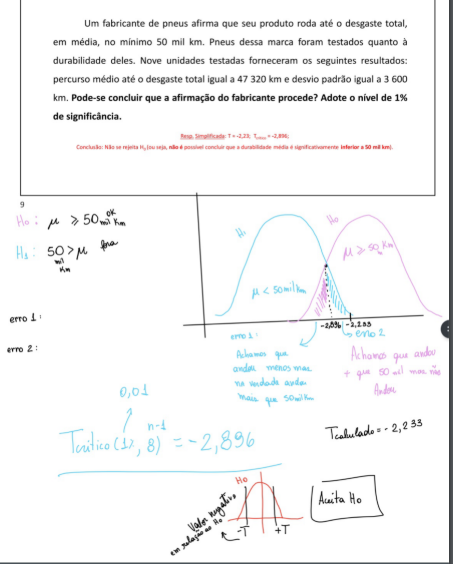 Um fabricante de pneus afirma que seu produto roda até o desgaste total,
em média, no mínimo 50 mil km. Pneus dessa marca foram testados quanto à
durabilidade deles. Nove unidades testadas forneceram os seguintes resultados:
percurso médio até o desgaste total igual a 47 320 km e desvio padrão igual a 3 600
km. Pode-se concluir que a afirmação do fabricante procede? Adote o nível de 1%
de significância.
Resp. Simplificada: T = -2,23; Tcrítico = -2,896;
Conclusão: Não se rejeita H₀ (ou seja, não é possível concluir que a durabilidade média é significativamente inferior a 50 mil km).
9
Ho : μ ⩾ 50 mil Km ok
H1 : 50 > μ
mil
Km
H1
Ho
μ ⩾ 50 Km
μ < 50 mil km
erro 1 :
erro 2 :
-2,896 -2,233
erro 1 :
Achamos que
andou menos mas
na verdade andou
mais que 50 mil Km
erro 2
Achamos que andou
+ que 50 mil mas não
Andou
0,01
n-1
Tcrítico (1%, 8) = -2,896
Tcalculado = - 2,233
Ho
Valor negativo
em relação ao Ho
-T
+T
Aceita Ho